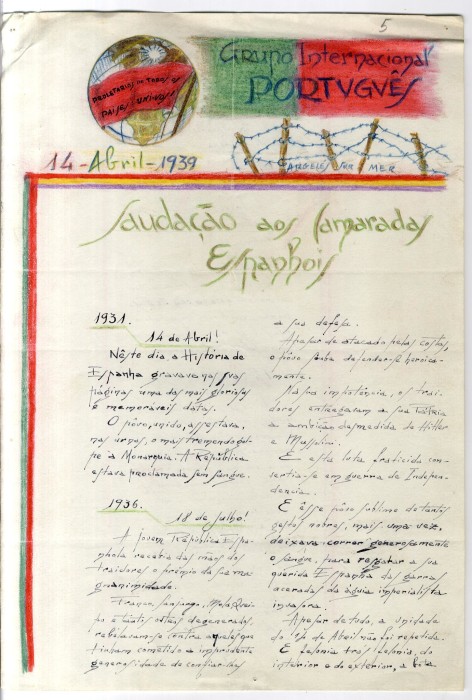 5
Grupo Internacional
PORTVGVÊS
PROLETARIOS DE TODOS OS
PAISES UNI-VOS!
14-Abril-1939
ARGELES SUR MER
Saudação aos Camaradas
Espanhois
1931.
14 de Abril!
Nêste dia a História de
Espanha gravava nas suas
páginas uma das mais gloriosas
e memoraveis datas.
O pôvo, unido, assestava,
nas urnas, o mais tremendo gol-
pe à Monarquia. A República
estava proclamada sem sangue.
1936.
18 de Julho!
A jovem República Espa-
nhola recebia das mãos dos
traidores o prémio da sua ma-
gnanimidade.
Franco, Sanjurjo, Mola, Quei-
po e tantos outros degenerados,
rebelavam-se contra aqueles que
tinham cometido a imprudente
generosidade de confiar-lhes
a sua defesa.
Apesar de atacado pelas costas,
o pôvo soube defender-se heroica-
mente.
Na sua impotência, os trai-
dores entregavam a sua Pátria
a ambição desmedida de Hitler
e Mussolini.
E esta luta fraticida con-
vertia-se em guerra de Indepen-
dencia.
E êsse pôvo sublime de tantos
gestos nobres, mais uma vez,
deixava correr generosamente
o sangue, para resgatar a sua
querida Espanha das garras
aceradas da águia imperialista
invasora.
Apesar de tudo, a unidade
do 14 de Abril não foi repetida.
E felonia trás felonia, do
interior e do exterior, a